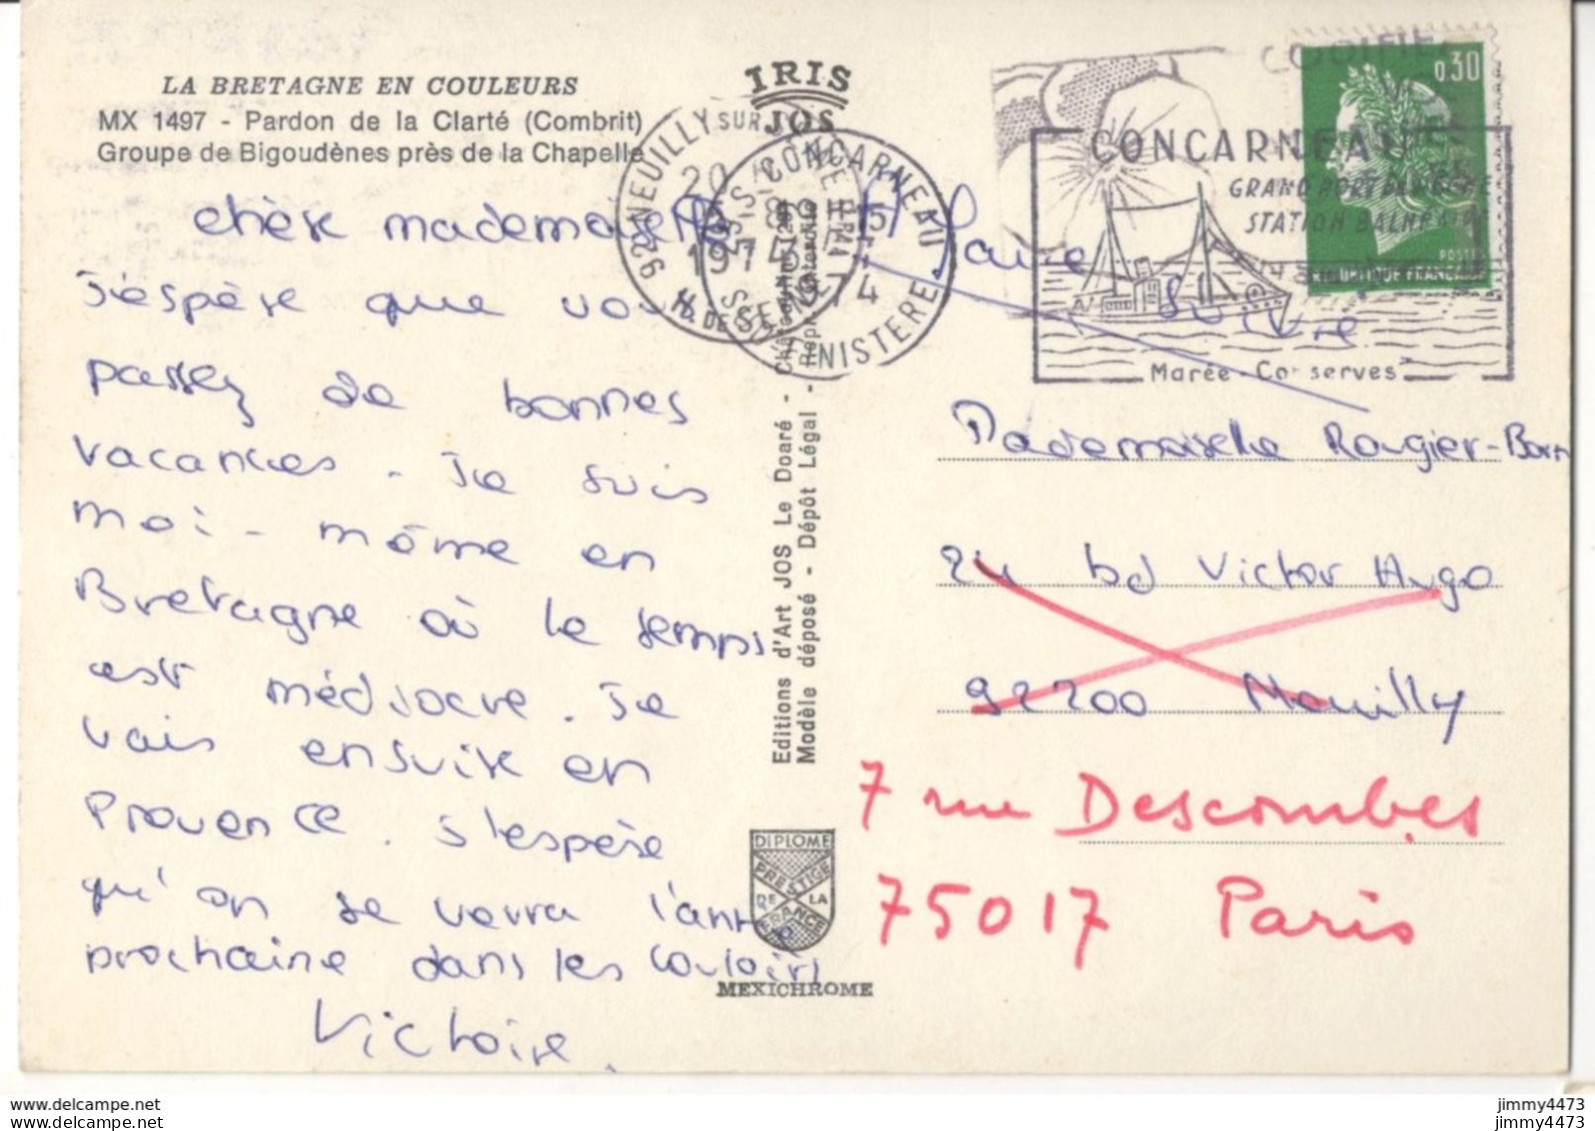 LA BRETAGNE EN COULEURS
MX 1497 - Pardon de la Clarté (Combrit)
Groupe de Bigoudènes près de la Chapelle
chère mademoiselle
J'espère que vous
passez de bonnes
vacances. Je suis
moi-même en
Bretagne où le temps
est médiocre. Je
vais ensuite en
Provence. J'espère
qu'on se verra l'année
prochaine dans les couloirs
Victoire.
IRIS
JOS
Editions d'Art JOS Le Doaré - Châteaulin (29)
Modèle déposé - Dépôt Légal -
DIPLOME
PRESTIGE
DE LA
FRANCE
MEXICHROME
92 NEUILLY SUR SEINE
20
1974
H. DE SEINE
CONCARNEAU
FINISTERE
CONCARNEAU
GRAND PORT DE PECHE
STATION BALNEAIRE
Marée - Conserves
0,30
POSTES
REPUBLIQUE FRANCAISE
Faire suivre
Mademoiselle Rougier-Born
24 bd Victor Hugo
92200 Neuilly
7 rue Descombes
75017 Paris
jimmy4473
jimmy4473
delcampe.net
delcampe.net